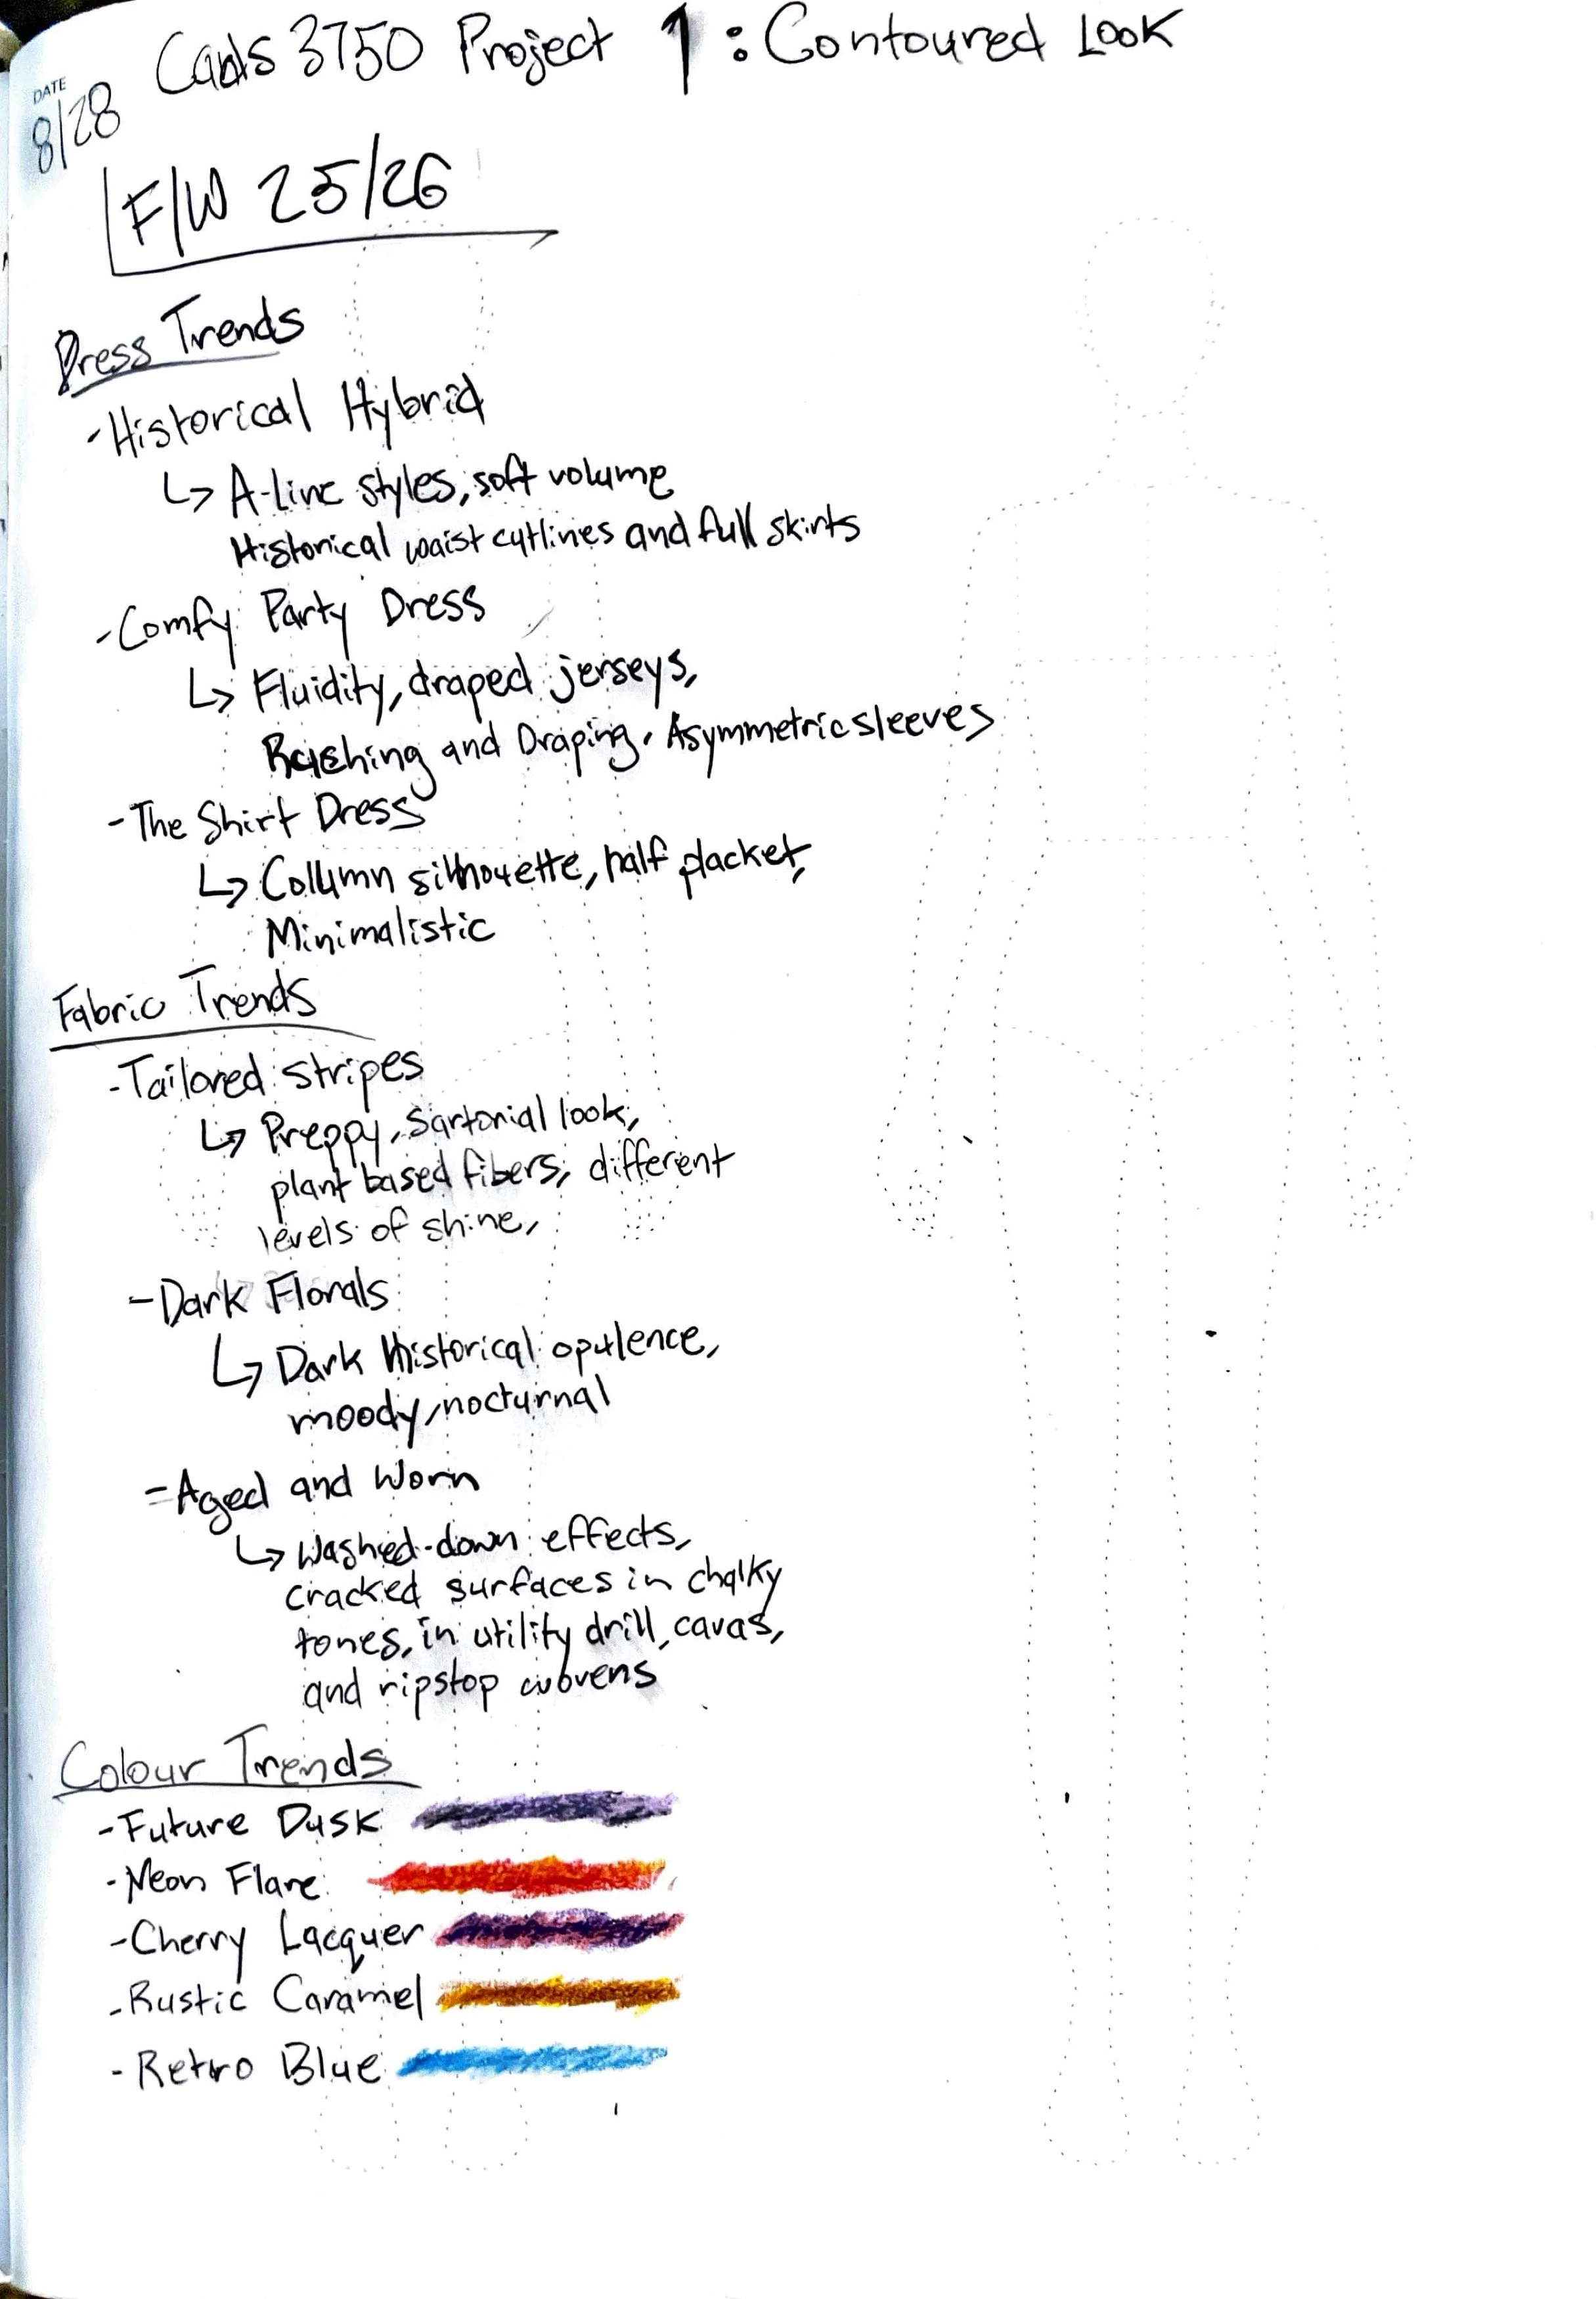 Cads 3750 Project 1: Contoured Look
DATE
8/28
F/W 25/26
Dress Trends
-Historical Hybrid
↳ A-line styles, soft volume
Historical waist cutlines and full skirts
-Comfy Party Dress
↳ Fluidity, draped jerseys,
Ruching and Draping. Asymmetric sleeves
-The Shirt Dress
↳ Column silhouette, half placket,
Minimalistic
Fabric Trends
-Tailored stripes
↳ Preppy, Sartorial look,
plant based fibers, different
levels of shine,
-Dark Florals
↳ Dark Historical opulence,
moody, nocturnal
-Aged and Worn
↳ Washed-down effects,
cracked surfaces in chalky
tones, in utility drill, cavas,
and ripstop wovens
Colour Trends
-Future Dusk
-Neon Flare
-Cherry Lacquer
-Rustic Caramel
-Retro Blue